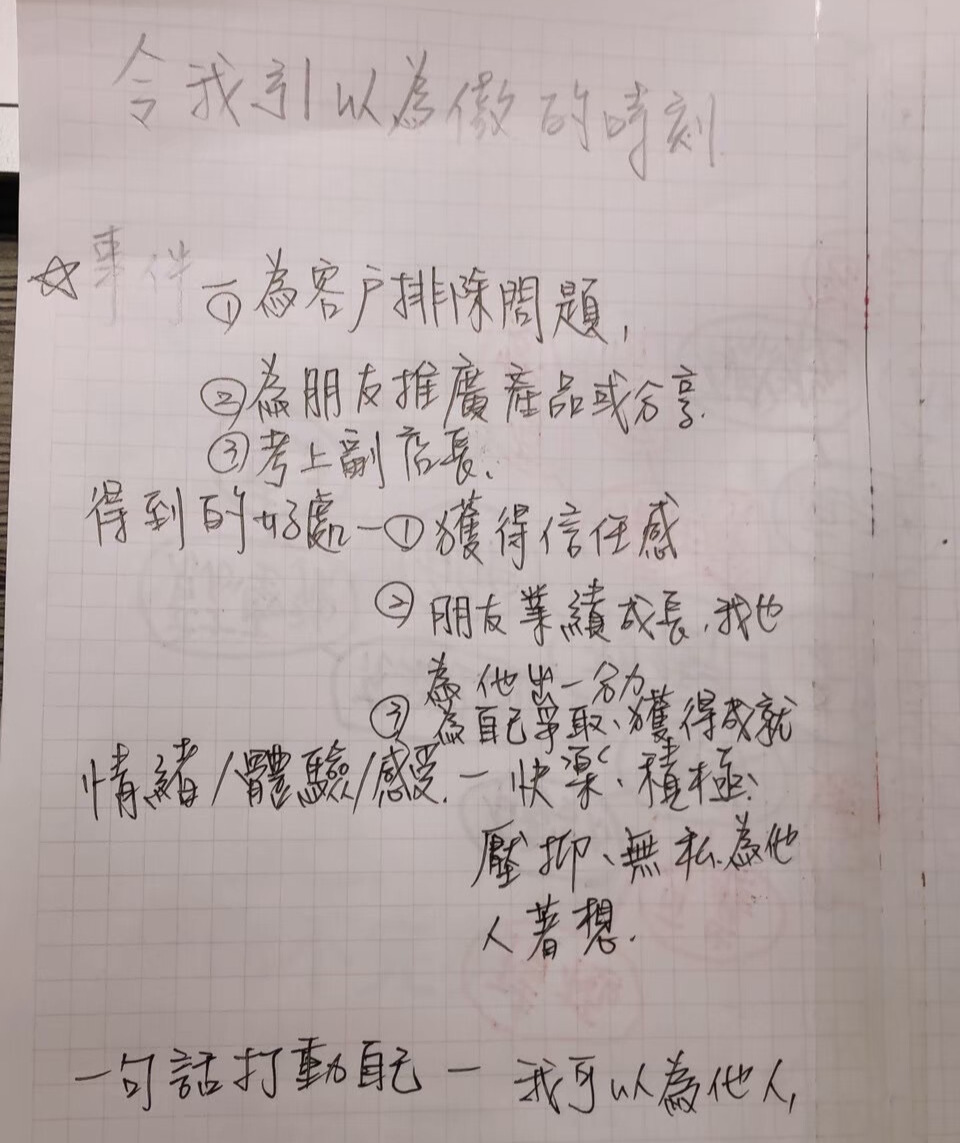 令我引以為傲的時刻
☆事件一①為客戶排除問題,
②為朋友推廣產品或分享.
③考上副店長、
得到的好處一①獲得信任感
②朋友業績成長,我也
為他出一分力
③為自己爭取、獲得成就
情緒/體驗/感受.一快樂、積極、
壓抑、無私為他
人著想.
一句話打動自己一我可以為他人,